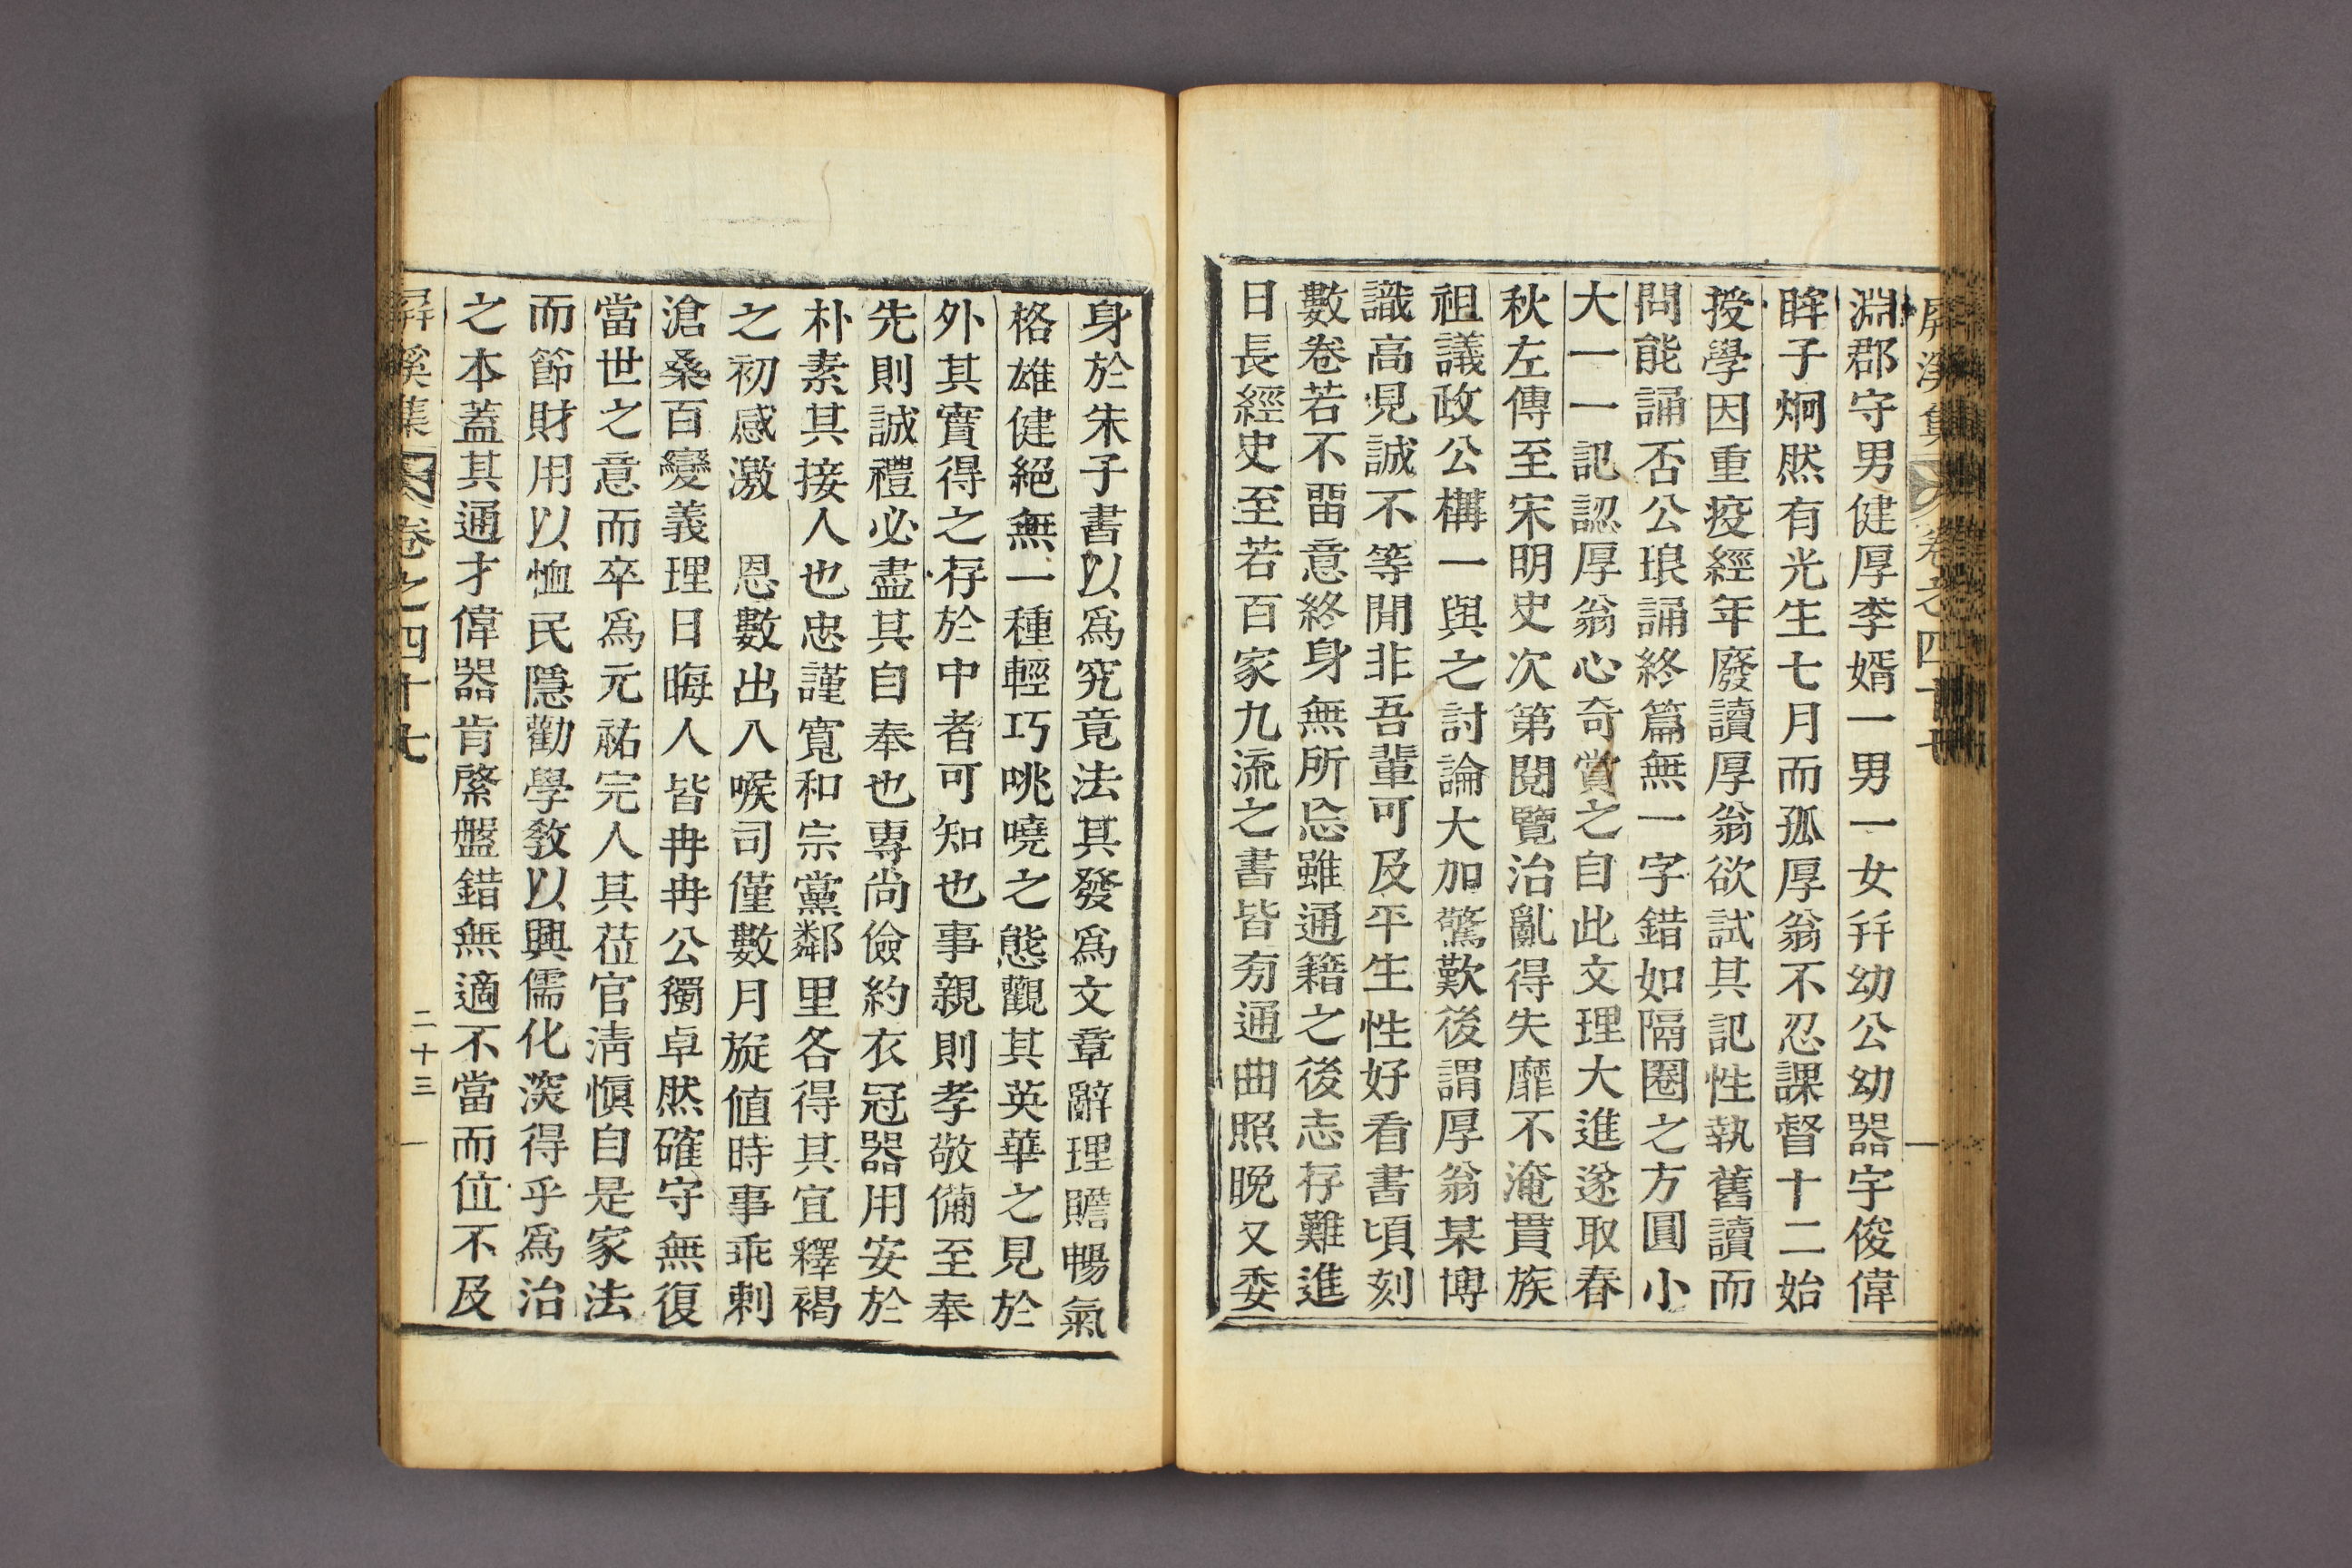 屏溪集 卷之四十七
淵郡守男健厚李婿一男一女幷幼公幼器宇俊偉
眸子炯然有光生七月而孤厚翁不忍課督十二始
授學因重疫經年廢讀厚翁欲試其記性執舊讀而
問能誦否公琅誦終篇無一字錯如隔圈之方圓小
大一一記認厚翁心奇賞之自此文理大進遂取春
秋左傳至宋明史次第閱覽治亂得失靡不淹貫族
祖議政公構一與之討論大加驚歎後謂厚翁某博
識高見誠不等閒非吾輩可及平生性好看書頃刻
數卷若不留意終身無所忘雖通籍之後志存難進
日長經史至若百家九流之書皆旁通曲照晩又委
身於朱子書以爲究竟法其發爲文章辭理贍暢氣
格雄健絕無一種輕巧咷嘵之態觀其英華之見於
外其實得之存於中者可知也事親則孝敬備至奉
先則誠禮必盡其自奉也專尚儉約衣冠器用安於
朴素其接人也忠謹寬和宗黨鄰里各得其宜釋褐
之初感激 恩數出入喉司僅數月旋値時事乖剌
滄桑百變義理日晦人皆冉冉公獨卓然確守無復
當世之意而卒爲元祐完人其莅官淸愼自是家法
而節財用以恤民隱勸學敎以興儒化深得乎爲治
之本蓋其通才偉器肯綮盤錯無適不當而位不及
屏溪集 卷之四十七 二十三